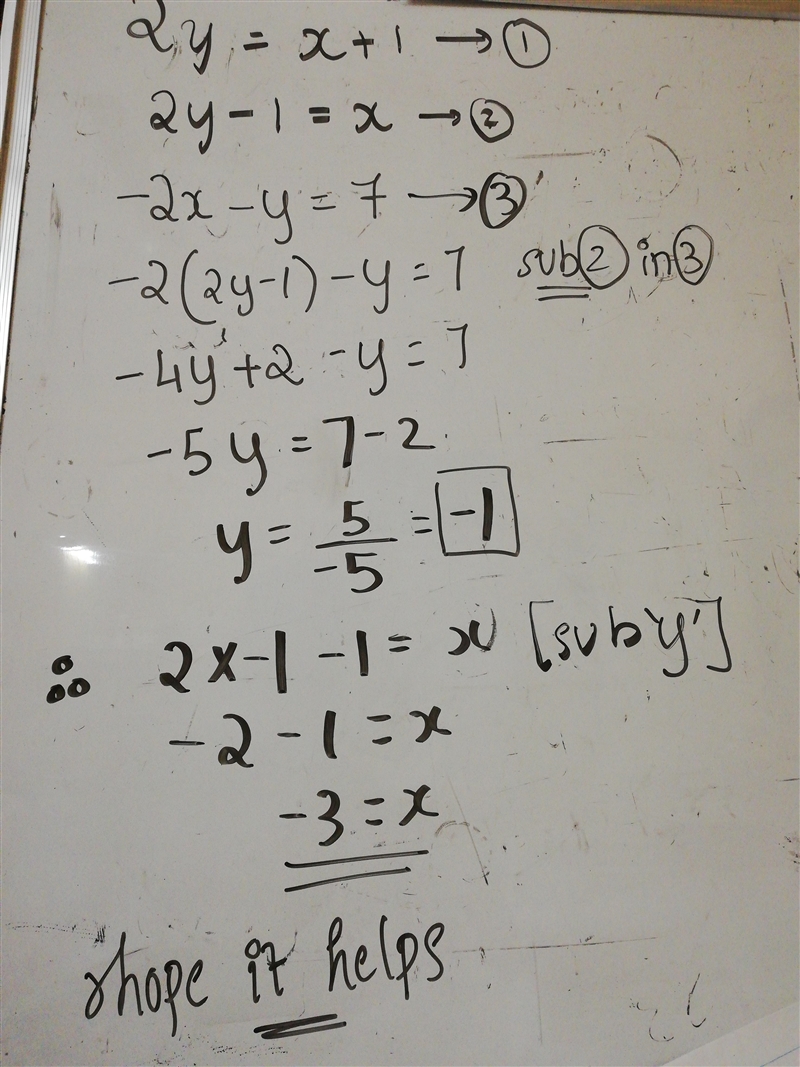 2y = x + 1 → ①
2y - 1 = x → ②
-2x - y = 7 → ③
-2(2y-1) - y = 7 sub ② in ③
-4y + 2 - y = 7
-5y = 7 - 2
y = 5/-5 = -1
∴ 2x-1 - 1 = x [sub 'y']
-2 - 1 = x
-3 = x
hope it helps